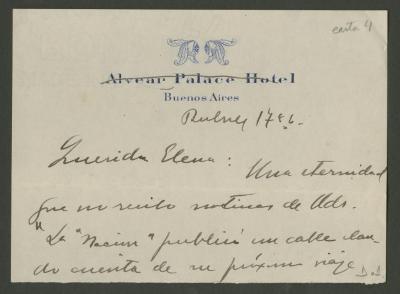 carta 4
Alvear Palace Hotel
Buenos Aires
1786.
Querida Elena: Una eternidad
que no recibo noticias de Uds.
"La "Nacion" publicó un cable dan-
do cuenta de su próximo viaje